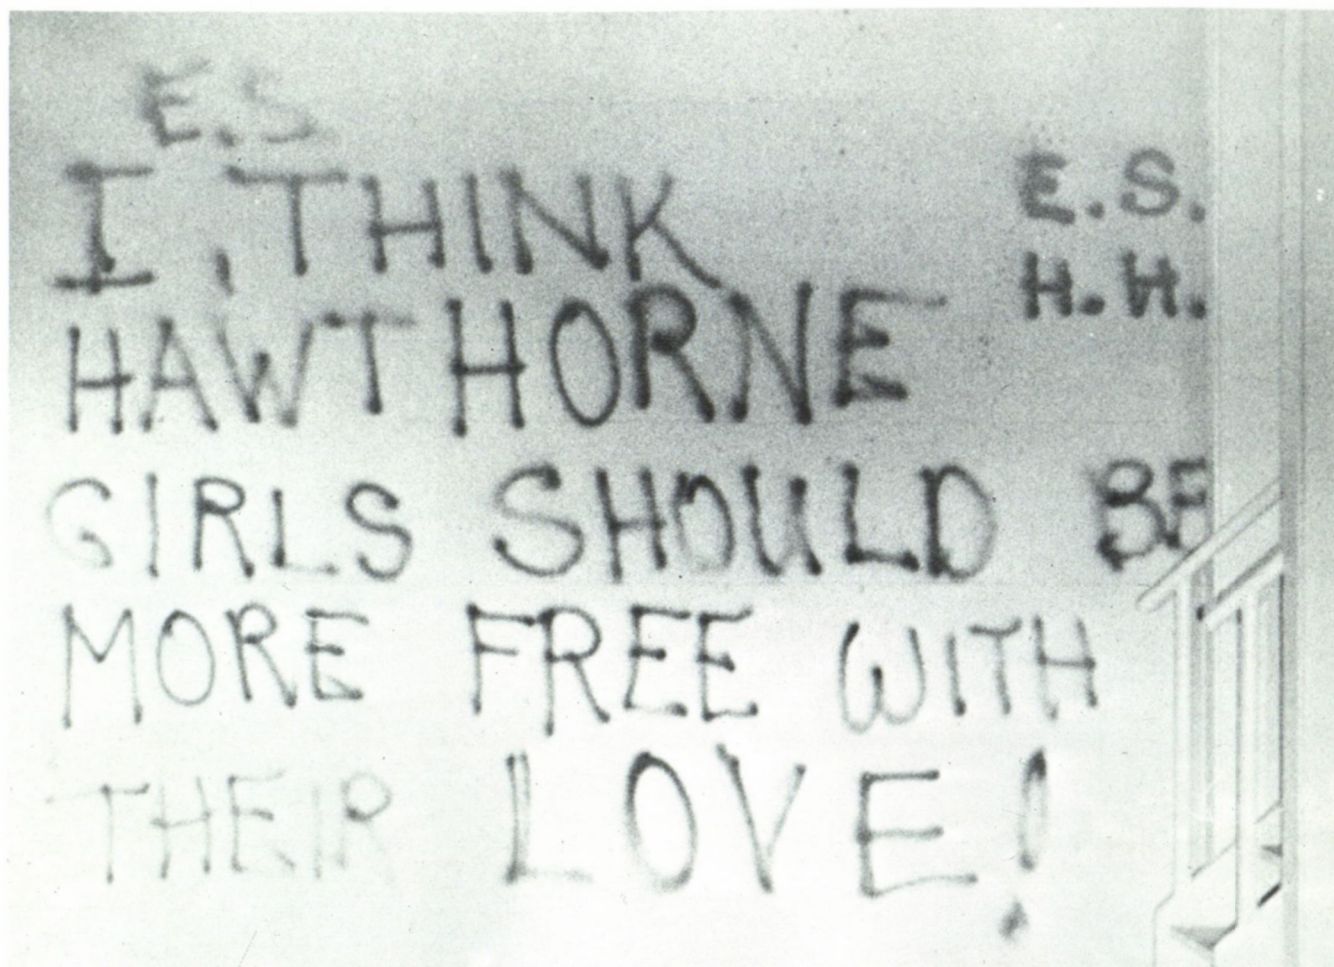 E.S
I, THINK
HAWTHORNE
GIRLS SHOULD BE
MORE FREE WITH
THEIR LOVE!
E.S.
H.H.